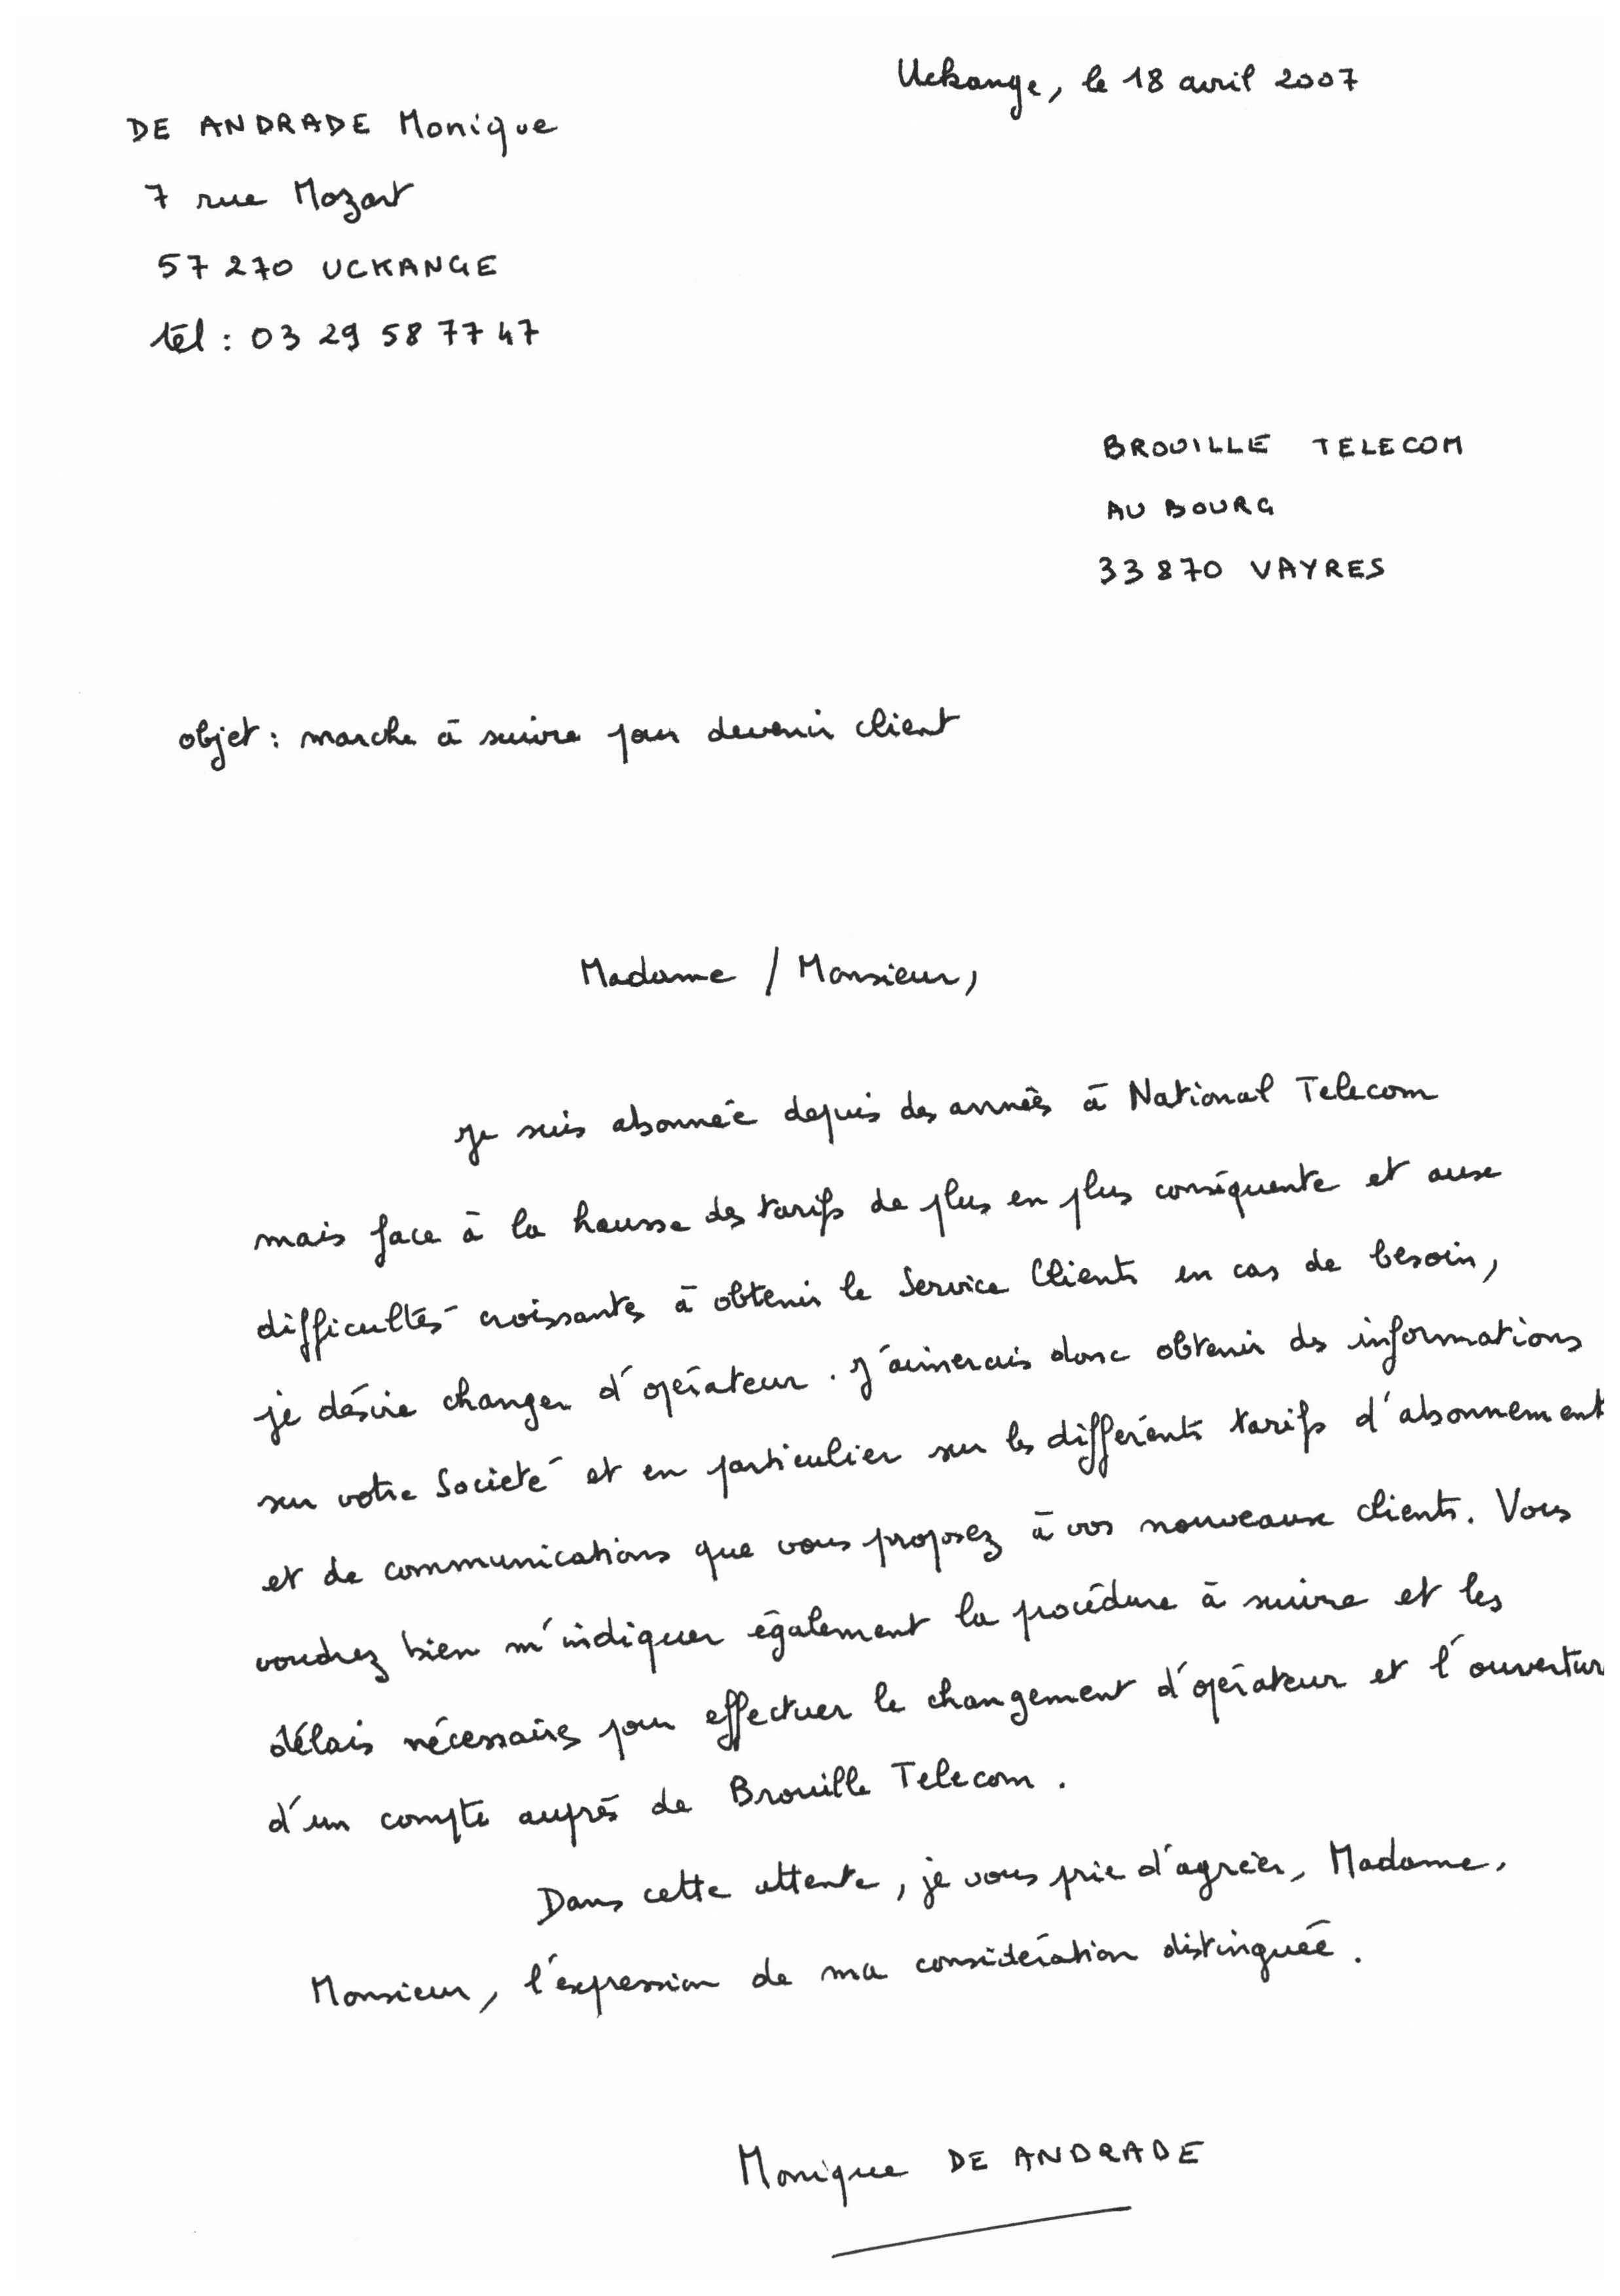 Uckange, le 18 avril 2007
DE ANDRADE Monique
7 rue Mozart
57 270 UCKANGE
tél : 03 29 58 77 47
BROUILLE TELECOM
AU BOURG
33 870 VAYRES
objet : marche à suivre pour devenir client
Madame / Monsieur,
Je suis abonnée depuis des années à National Telecom
mais face à la hausse des tarifs de plus en plus conséquente et aux
difficultés croissantes à obtenir le Service Clients en cas de besoin,
je désire changer d'opérateur. J'aimerais donc obtenir des informations
sur votre Société et en particulier sur les différents tarifs d'abonnement
et de communications que vous proposez à vos nouveaux clients. Vous
voudrez bien m'indiquer également la procédure à suivre et les
délais nécessaires pour effectuer le changement d'opérateur et l'ouvertur
d'un compte auprès de Brouille Telecom.
Dans cette attente, je vous prie d'agréer, Madame,
Monsieur, l'expression de ma considération distinguée.
Monique DE ANDRADE